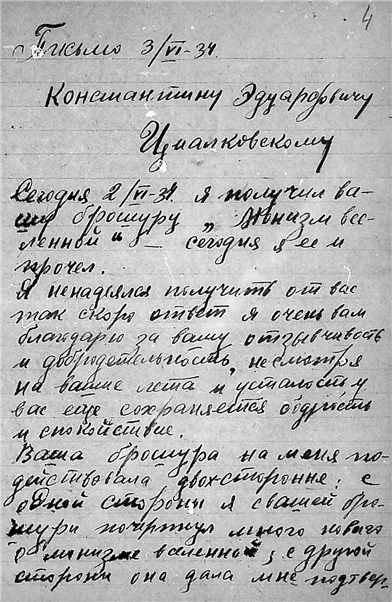 4
Письмо 3/VI-34.
Константину Эдуардовичу
Циалковскому
Сегодня 2/VI-34 я получил ва-
шу брошуру „Монизм все-
ленной" – сегодня я ее и
прочел.
Я ненадеялся получить от вас
так скоро ответ я очень вам
благодарю за вашу отзывчивость
и добродетельность, несмотря
на ваше лета и усталость у
вас еще сохраняется бодрость
и спокойствие.
Ваша брошура на меня по-
действовала двохсторонне: с
одной стороны я с вашей бро-
шури почерпнул много нового
о монизме вселенной, с другой
стороны она дала мне подтвер-